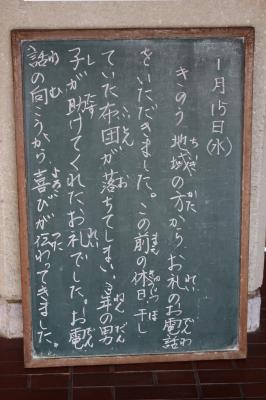 1月15日(水)
きのう、地域の方からお礼のお電話
をいただきました。この前の休日、干し
ていた布団が落ちてしまい、3年の男
子が助けてくれたお礼でした。お電
話の向こうから喜びが伝わってきました。